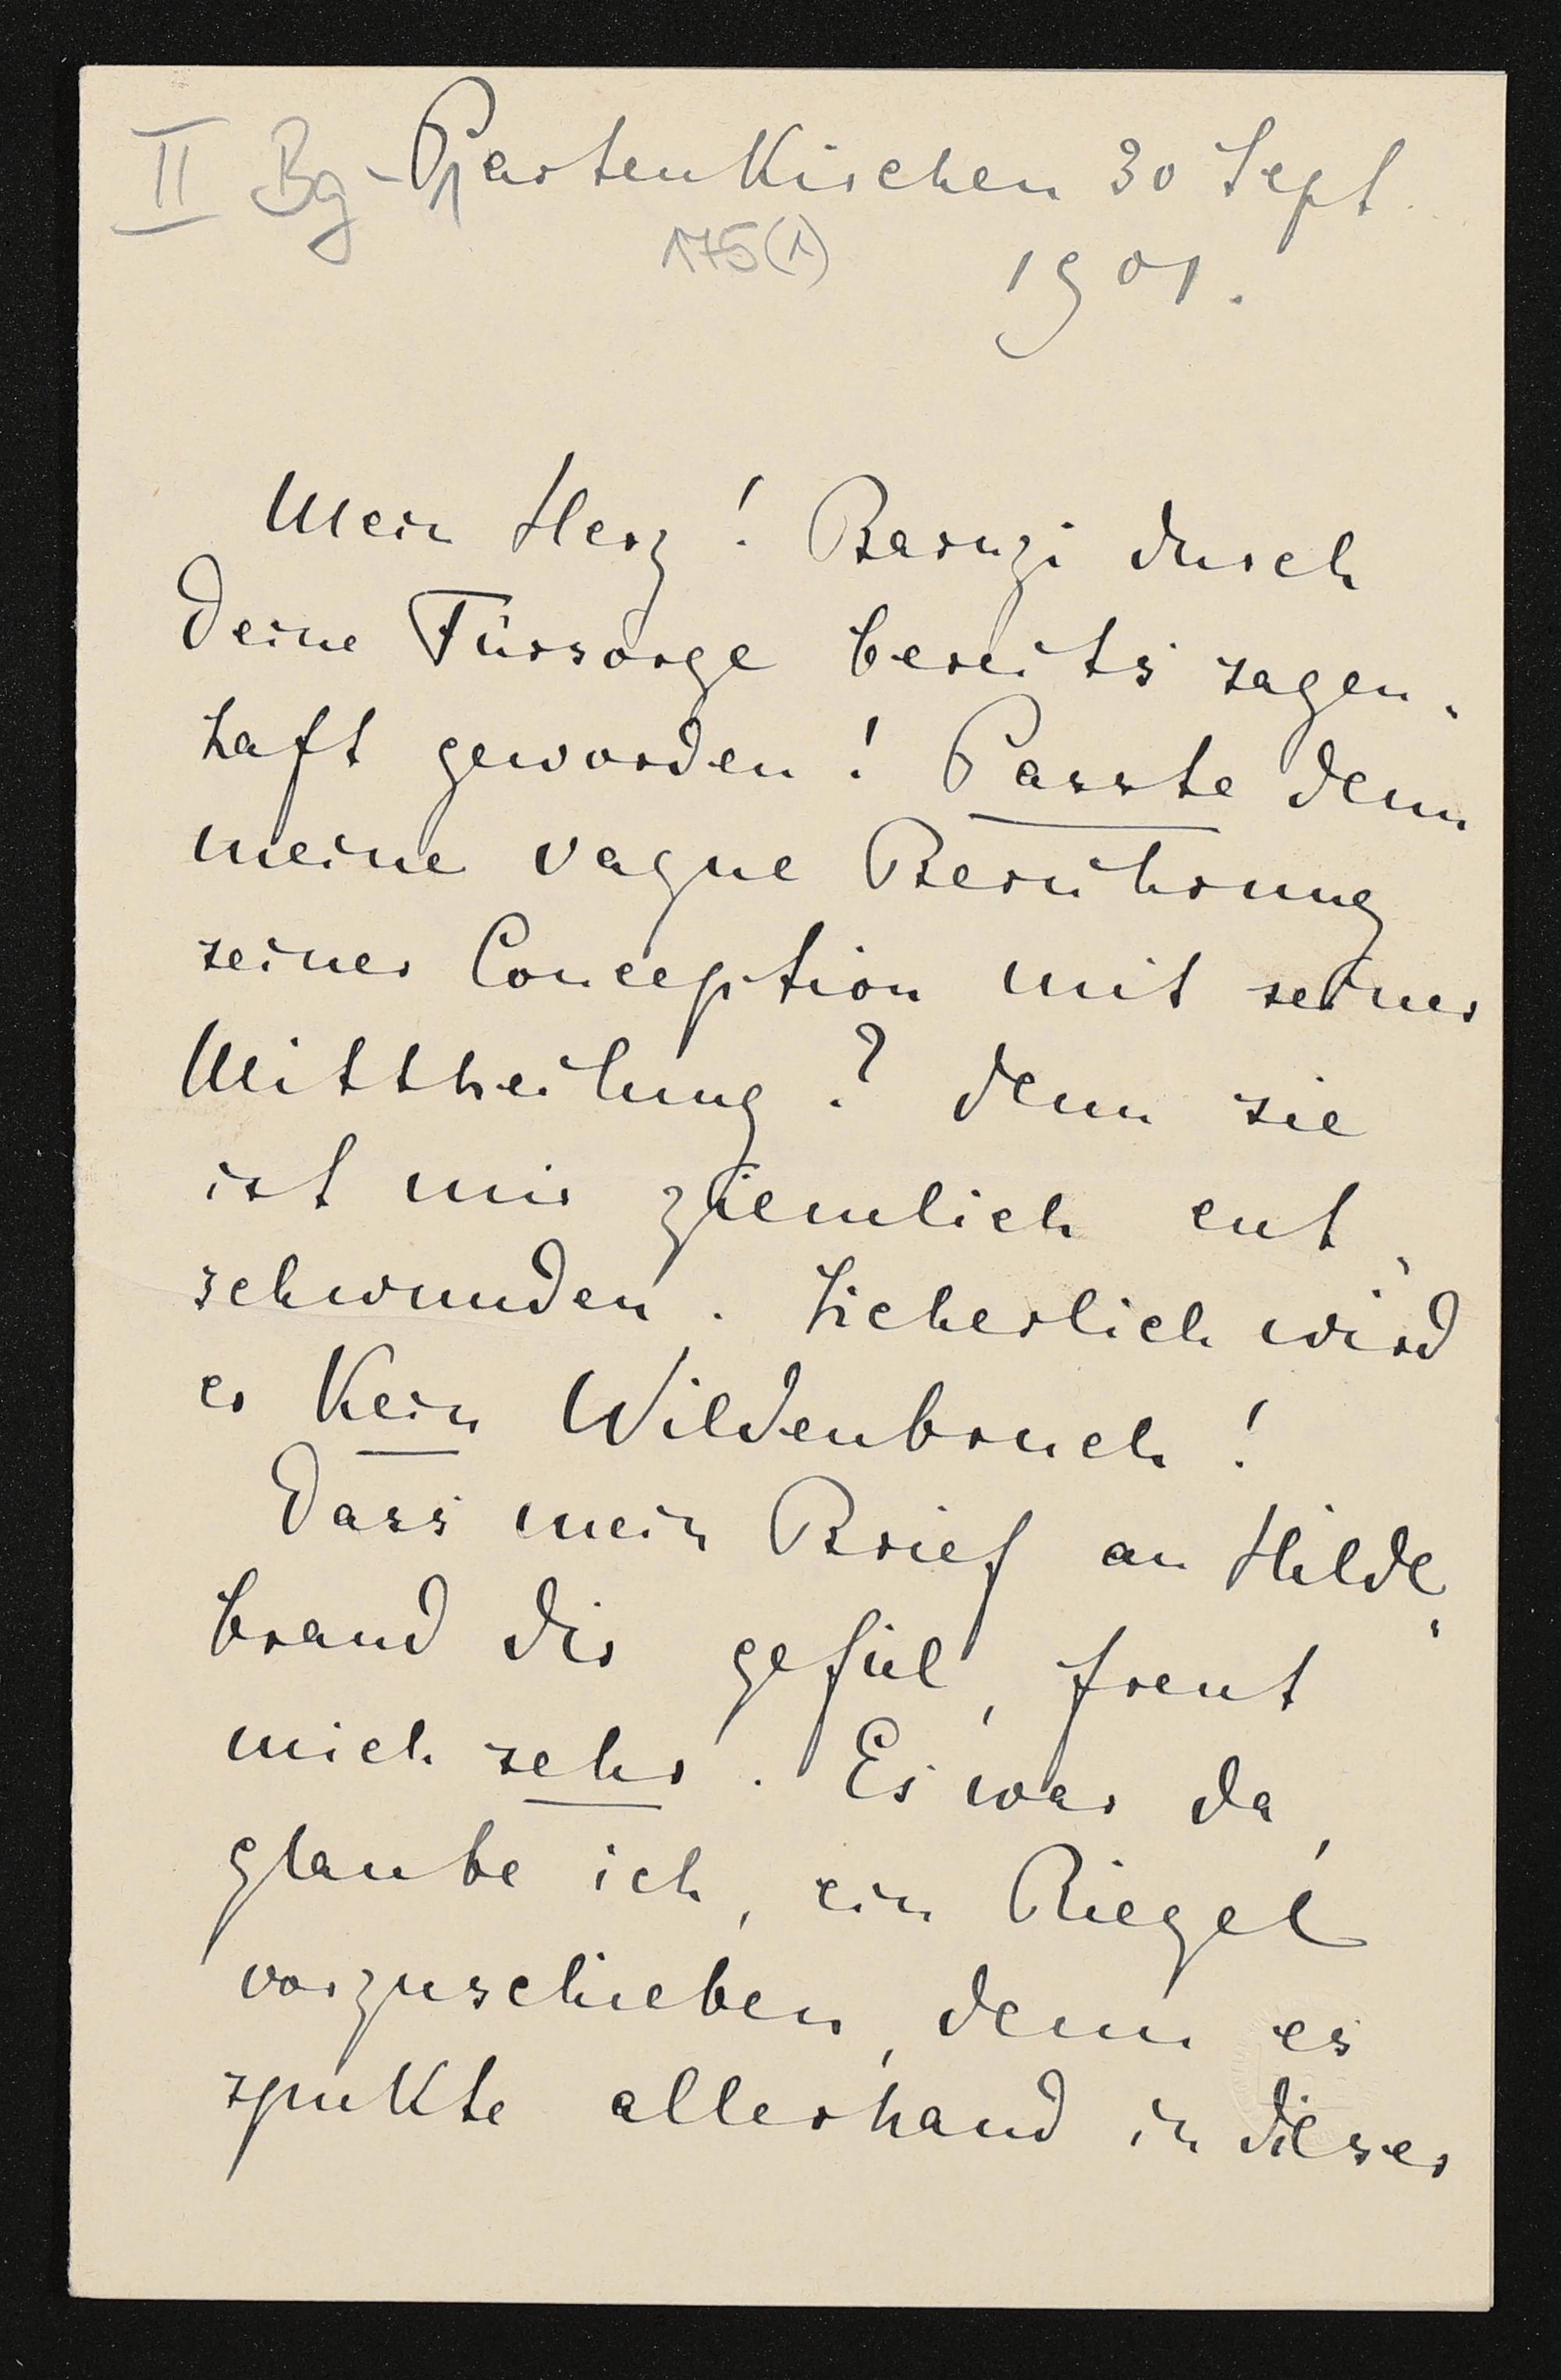 II Bg - Partenkirchen 30 Sept.
175(1) 1901.
Mein Herz! Baruzi durch
deine Fürsorge bereits sagen-
haft geworden! Passte denn
meine vague Berührung
seiner Conception mit seiner
Mittheilung? denn sie
ist mir ziemlich ent-
schwunden. Sicherlich wird
er kein Wildenbruch!
Dass mein Brief an Hilde-
brand dir gefiel, freut
mich sehr. Es war da,
glaube ich, ein Riegel
vorzuschieben, denn es
spukte allerhand in dieser